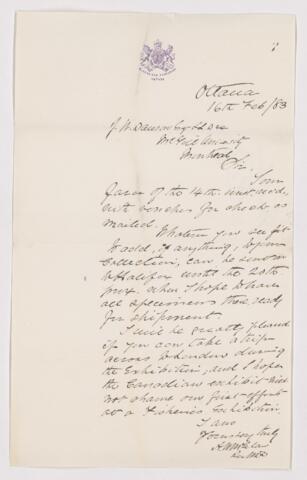 Ottawa
16th Feb/83
J. W. Dawson Esq LLD
McGill University
Montreal
Sir
Your
favor of the 14th inst recd,
with voucher for check, as
mailed.
Whatever you see fit
to add, if anything, to your
Collection, can be sent on
to Halifax until the 20th
prox. when I hope to have
all specimens there ready
for shipment.
I will be greatly pleased
if you can take a trip
across to London during
the Exhibition, and I hope
the Canadian exhibit will
not shame our first effort
at a Fisheries Exhibition.
I am
Yours very truly